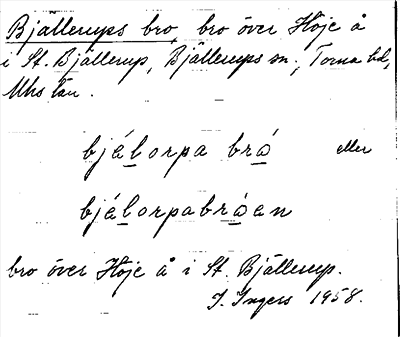 Bjällerups bro, bro över Höje å
i St. Bjällerup, Bjällerups sn., Torna hd,
Mhs län.
bjélorpa brå eller
bjélorpabråen
bro över Höje å i St. Bjällerup.
I. Ingers 1958.